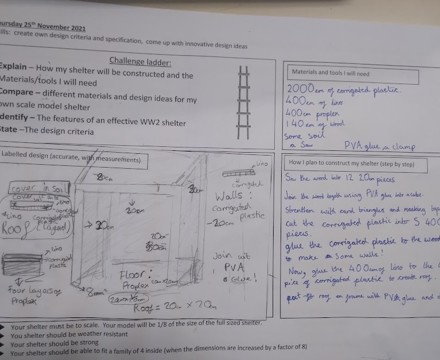 ursday 25th November 2021
ills: create own design criteria and specification, come up with innovative design ideas
Challenge ladder:
Explain – How my shelter will be constructed and the
Materials/tools I will need
Compare – different materials and design ideas for my
own scale model shelter
Identify – The features of an effective WW2 shelter
State – The design criteria
Materials and tools I will need
2000cm of corrigated plastic.
400cm of lino
400cm proplex
140cm of wood.
Some soil
a Saw PVA glue a clamp
Labelled design (accurate, with measurements)
cover in soil
Lino
Roof (layers)
Lino
corrigated plastic
four layers
Proplex
20cm
Floor:
Proplex
Roof = 20cm x 20cm
Lino
Walls:
corrigated
plastic
20cm
Join with
PVA
Glue!
How I plan to construct my shelter (step by step)
Saw the wood into 12 20cm pieces
Join the wood together using PVA glue into a cube.
Strengthen with card triangles and masking tape
Cut the corrigated plastic into 5 400
pieces.
glue the corrigated plastic to the wood
to make some walls!
Now, glue the 400cm lino to the
piece of corrigated plastic to create roof
with PVA glue and
Your shelter must be to scale. Your model will be 1/8 of the size of the full sized shelter.
You shelter should be weather resistant
Your shelter should be strong
Your shelter should be able to fit a family of 4 inside (when the dimensions are increased by a factor of 8)